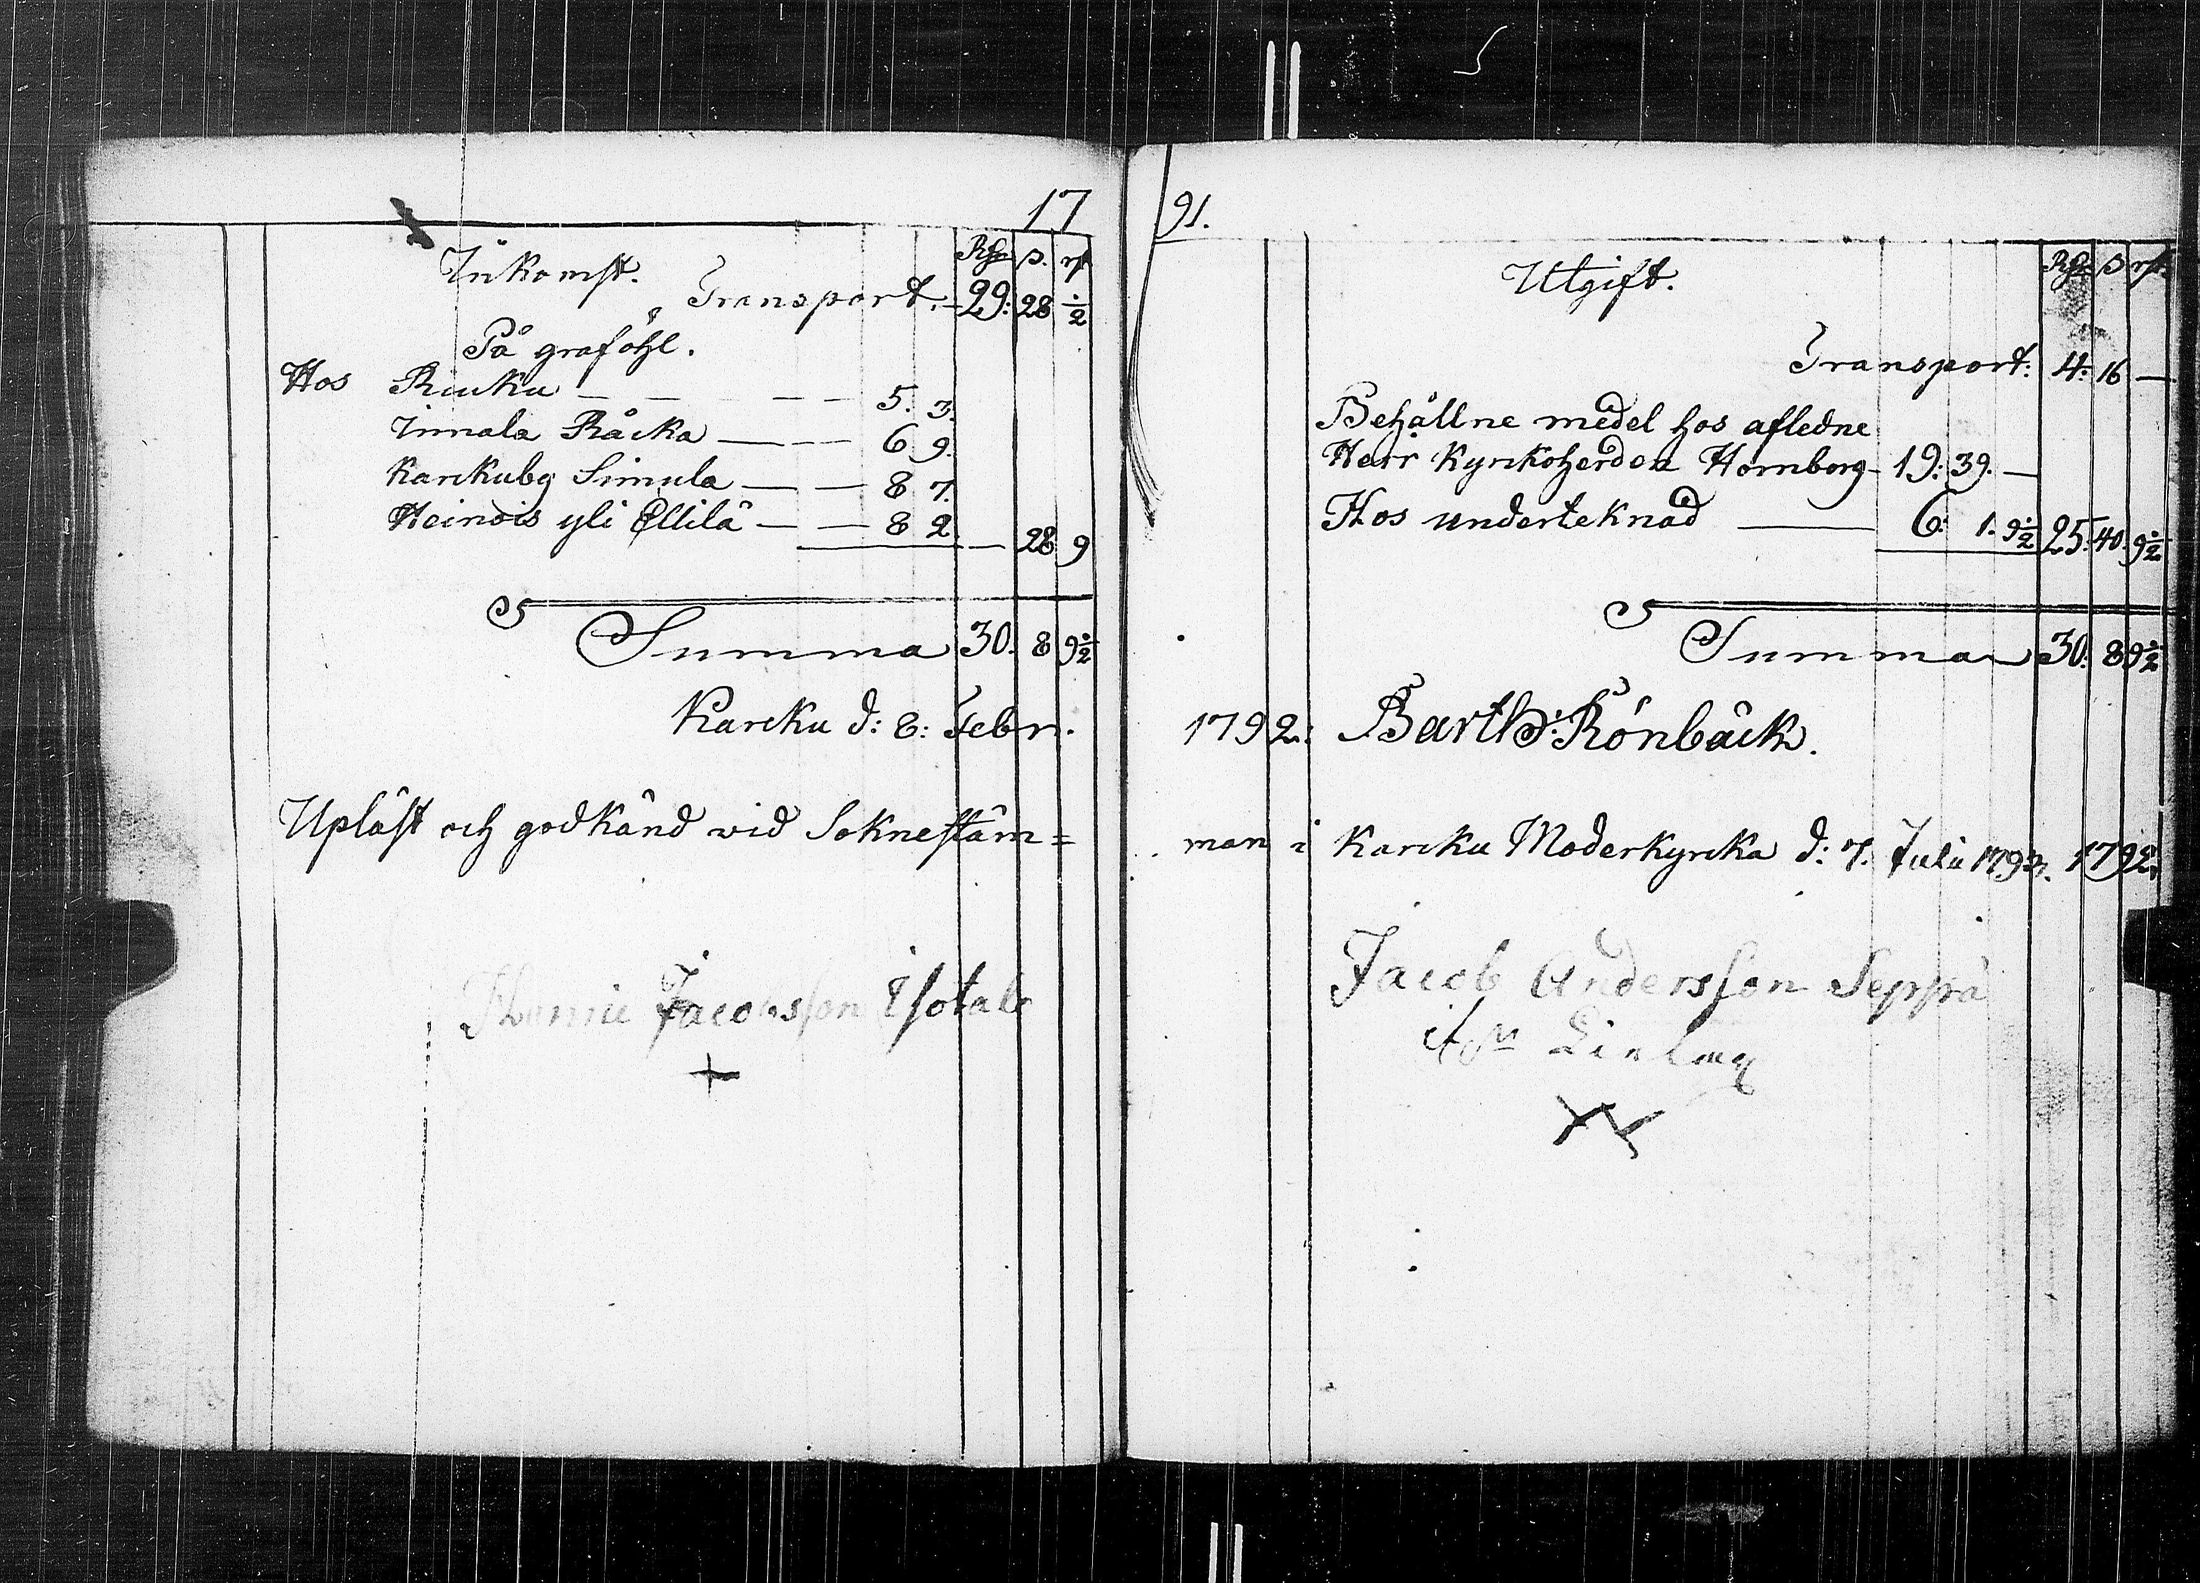 17
Inkomst. Rdr ß. rst
Transport. 29: 28 ½
På graföhl.
Hos Riuku 5. 3.
Innala Råcka 6 9.
Karckuby Simula 8 7.
Heinois yli Ellilä 8 2 — 28 9
Summa 30. 8 9½
Karcku d: 8: Febr.
Upläst och godkänd vid Soknestäm=
Jacobsson Isotalo
+
91.
Utgift. Rdr ß rst
Transport: 4: 16 —
Behållne medel hos aflednе
Herr Kyrkoherden Hornborg 19: 39. —
Hos underteknad 6: 1. 9½ 25: 40. 9½
Summa 30: 8 9½
1792: Barth: Rönbäck.
man i Karcku Moderkyrcka d: 7. Julii 1792. 1792.
Jacob Andersson Seppä